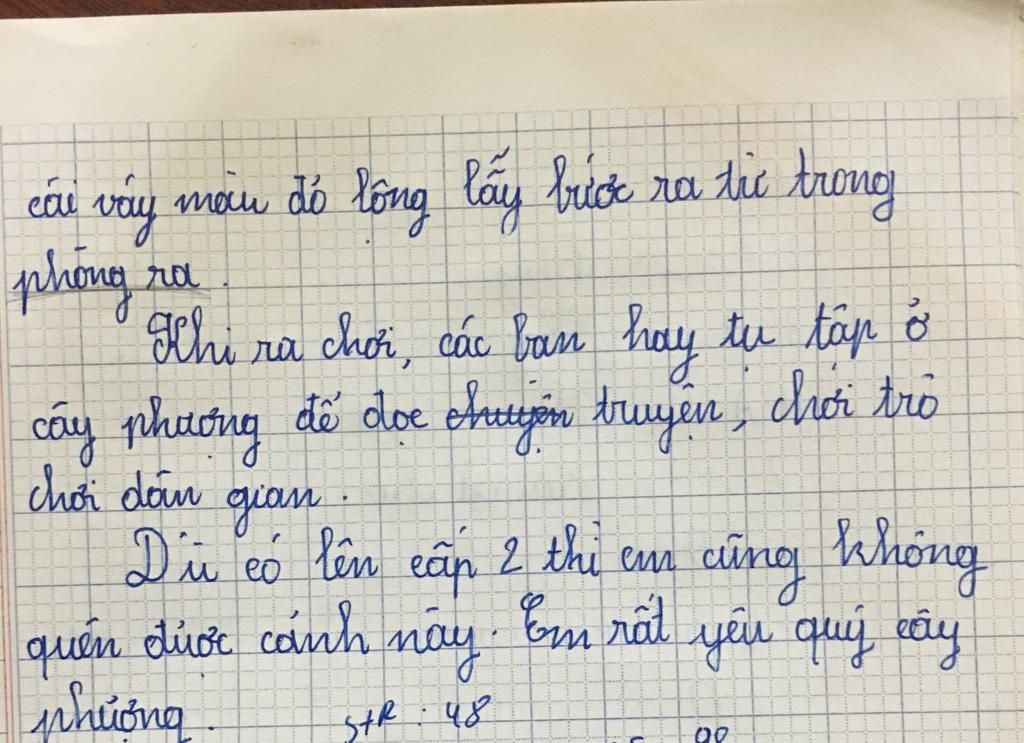 cái váy màu đỏ lộng lẫy bước ra từ trong
phòng ra.
Khi ra chơi, các bạn hay tụ tập ở
cây phượng để đọc chuyện truyện, chơi trò
chơi dân gian.
Dù có lên cấp 2 thì em cũng không
quên được cảnh này. Em rất yêu quý cây
phượng.
StR : 48